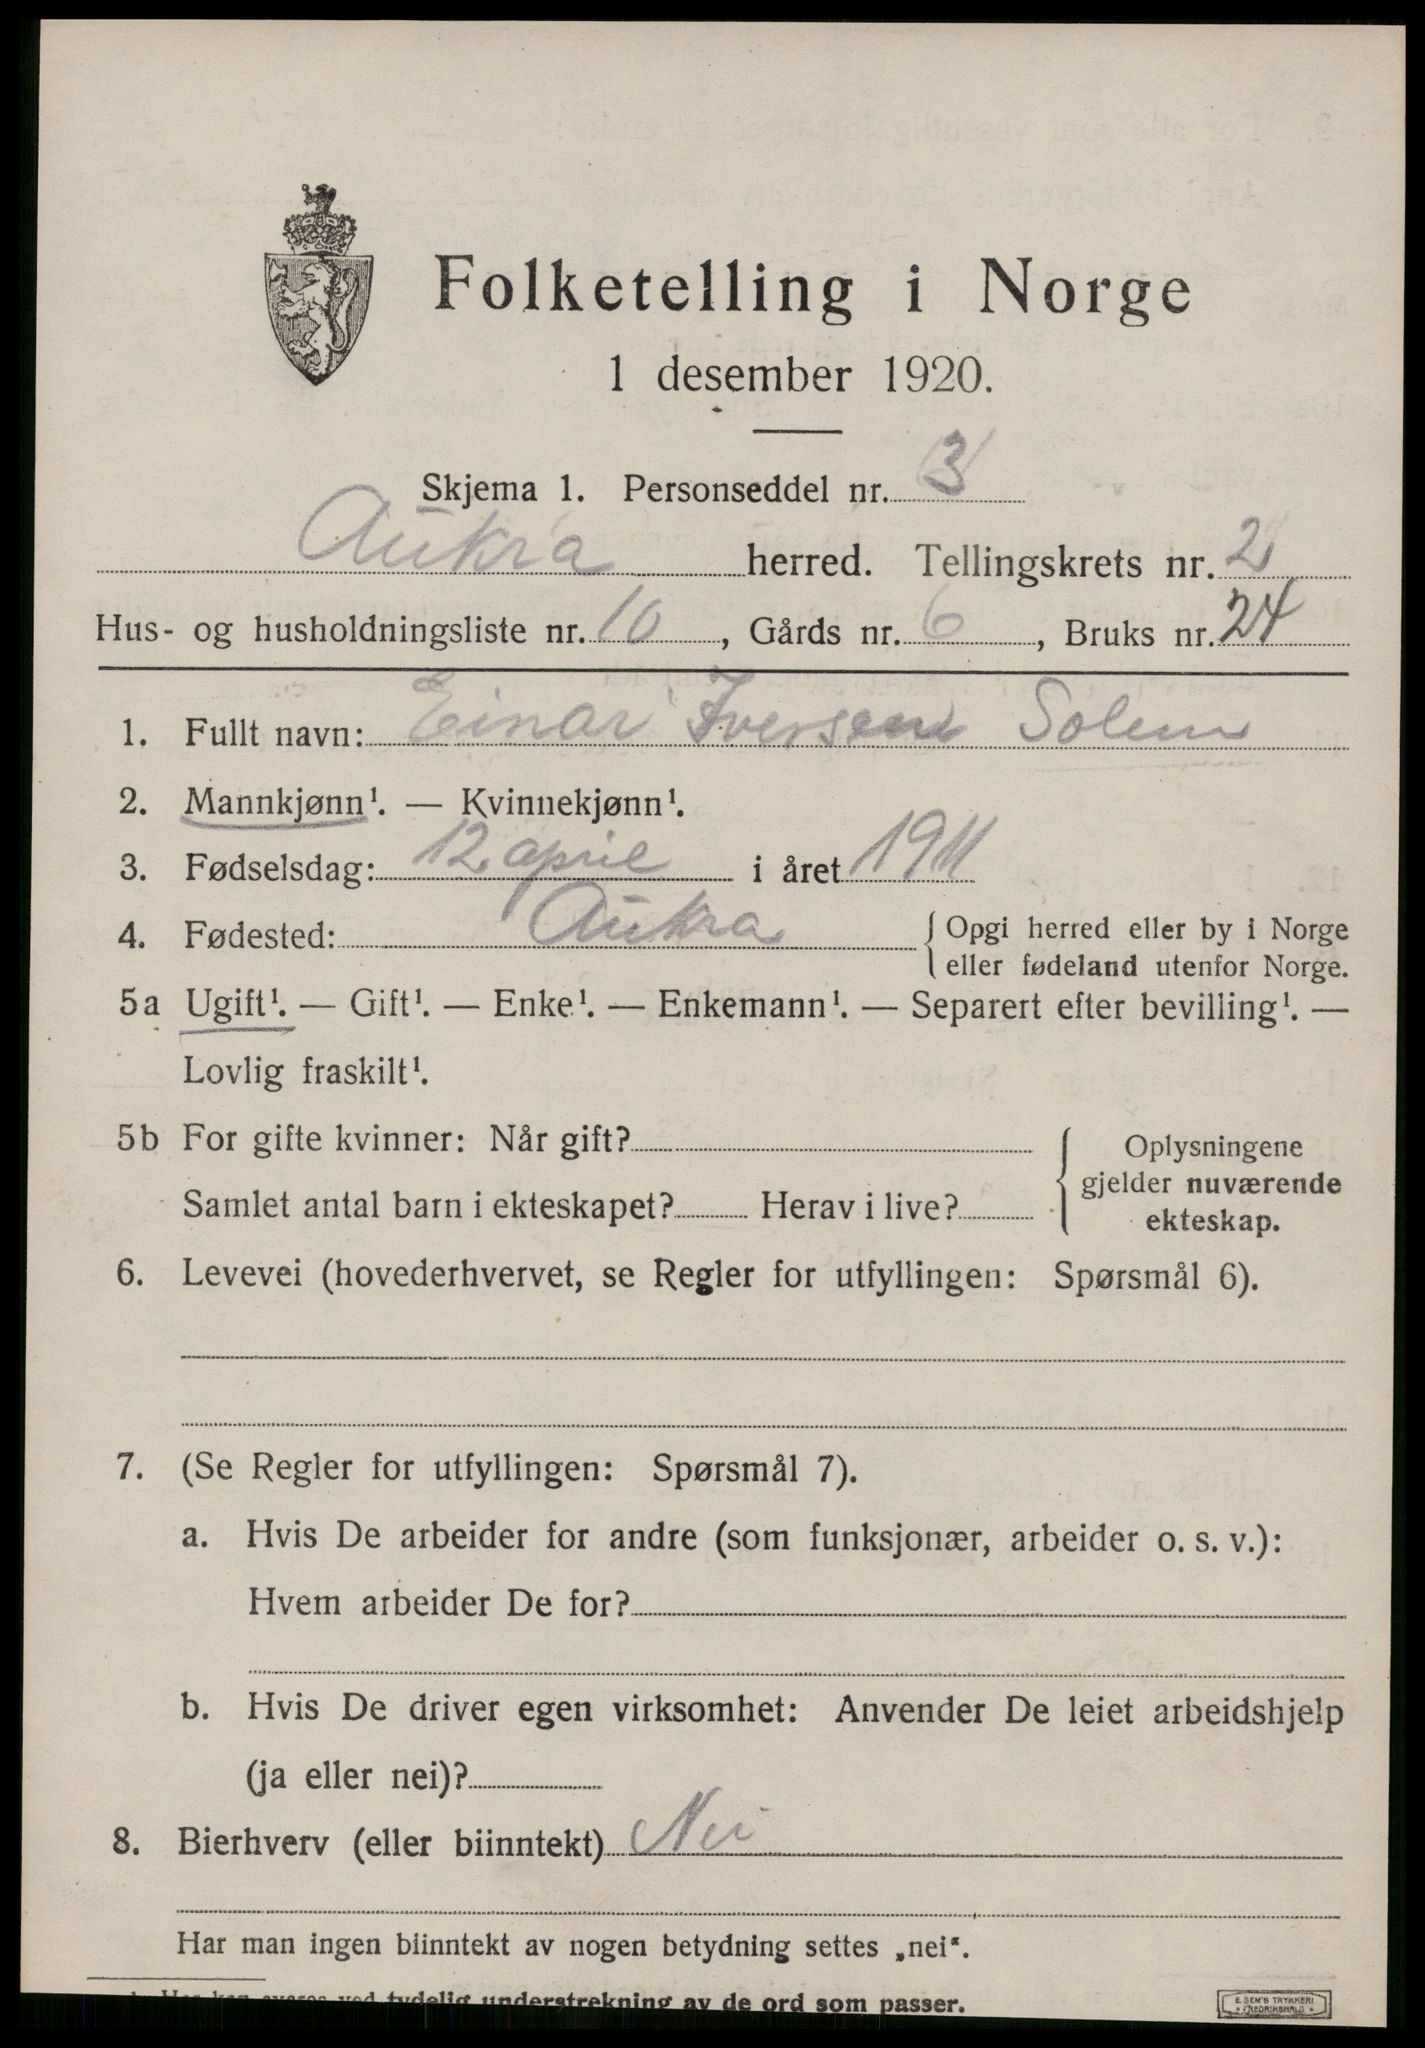 Folketelling i Norge
1 desember 1920.
Skjema 1. Personseddel nr. 3
Aukra herred. Tellingskrets nr. 2
Hus- og husholdningsliste nr. 10, Gårds nr. 6, Bruks nr. 24
1. Fullt navn: Einar Iversen Solem
2. Mannkjønn¹. — Kvinnekjønn¹.
3. Fødselsdag: 12. april i året 1911
4. Fødested: Aukra { Opgi herred eller by i Norge
eller fødeland utenfor Norge.
5a Ugift¹. — Gift¹. — Enke¹. — Enkemann¹. — Separert efter bevilling¹. —
Lovlig fraskilt¹.
5b For gifte kvinner: Når gift?
Samlet antal barn i ekteskapet? Herav i live?
{ Oplysningene
gjelder nuværende
ekteskap.
6. Levevei (hovederhvervet, se Regler for utfyllingen: Spørsmål 6).
7. (Se Regler for utfyllingen: Spørsmål 7).
a. Hvis De arbeider for andre (som funksjonær, arbeider o. s. v.):
Hvem arbeider De for?
b. Hvis De driver egen virksomhet: Anvender De leiet arbeidshjelp
(ja eller nei)?
8. Bierhverv (eller biinntekt) Nei
Har man ingen biinntekt av nogen betydning settes „nei“.
¹ Her kan svares ved tydelig understrekning av de ord som passer.
E. SEM'S TRYKKERI
FREDRIKSHALD